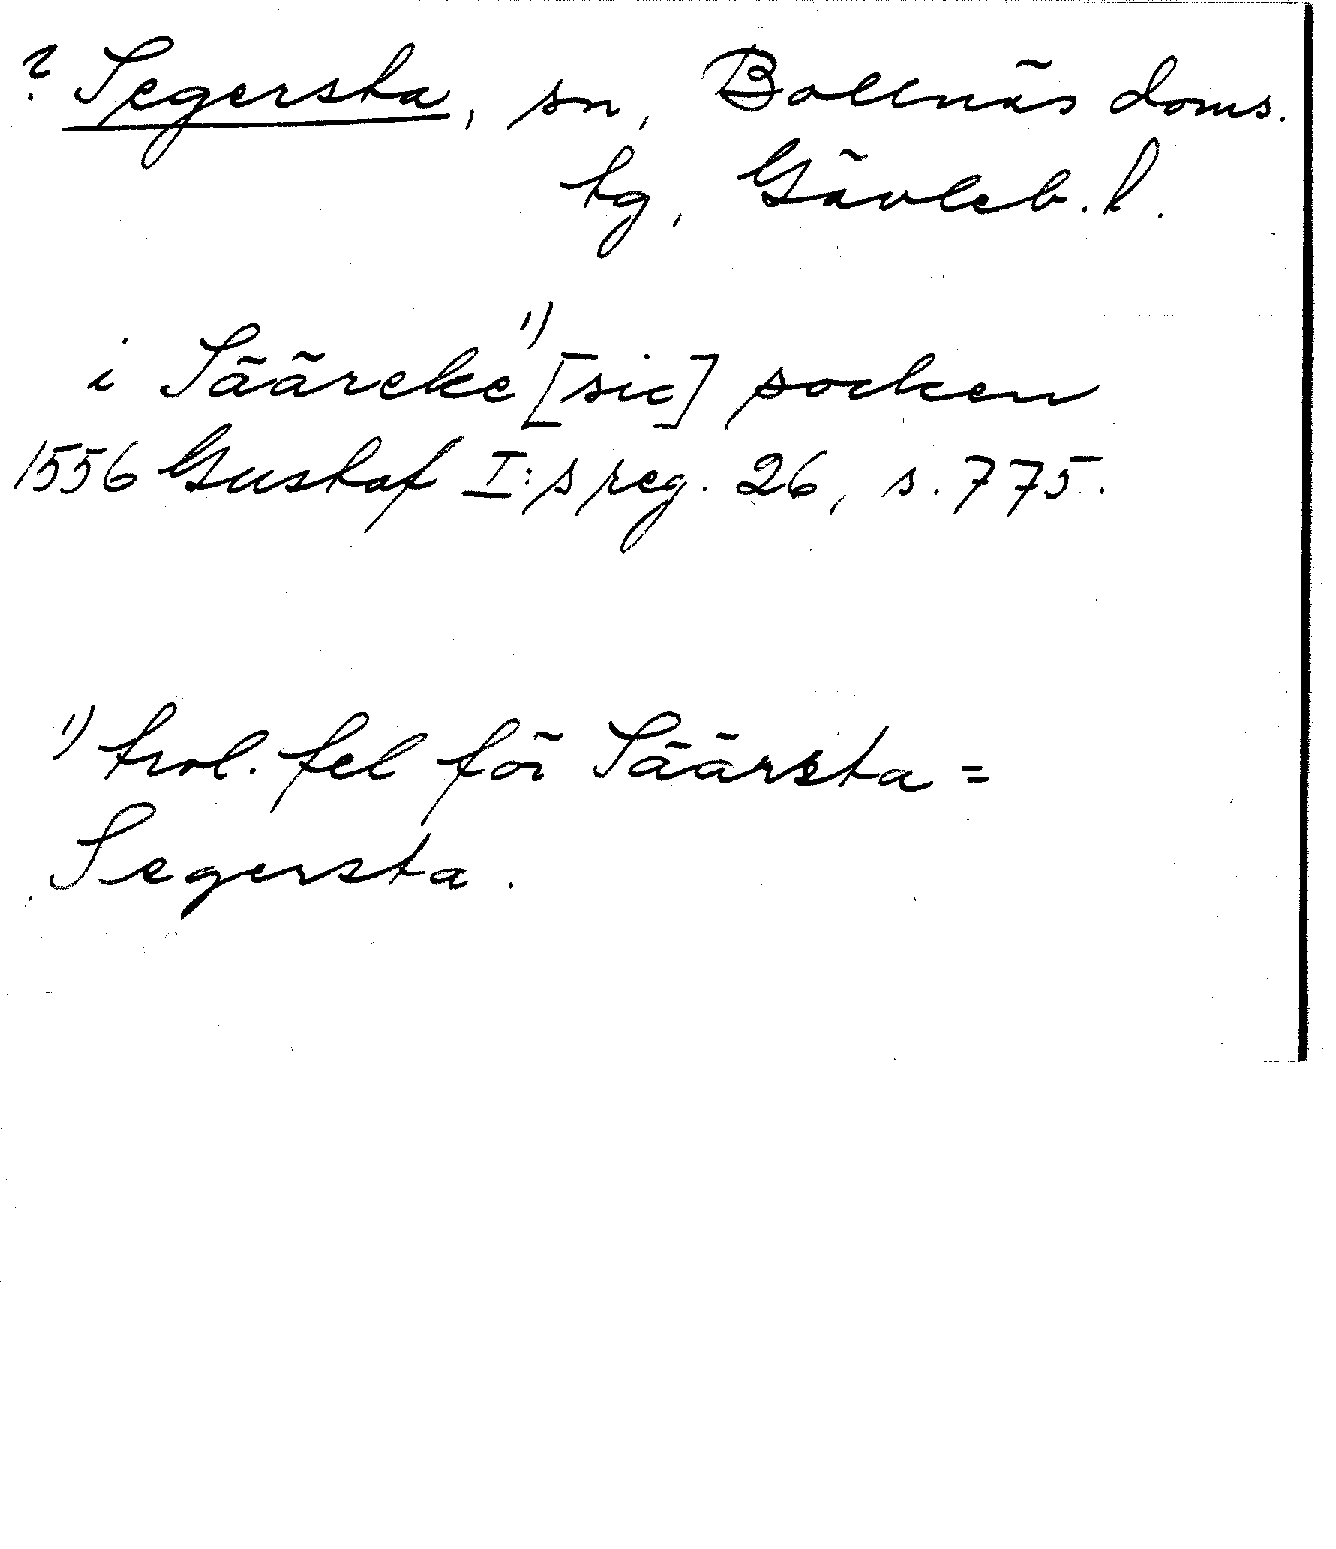 ? Segersta, sn, Bollnäs doms.
tg, Gävleb. l.
i Säärcke¹⁾ [sic] socken
1556 Gustaf I:s reg. 26, s. 775.
¹⁾ trol. fel för Säärsta =
Segersta.